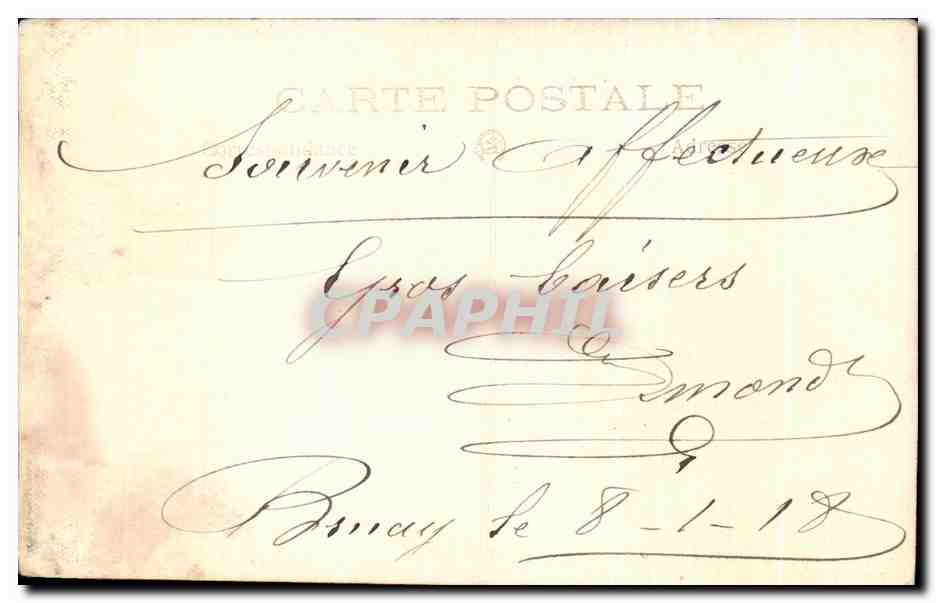 CARTE POSTALE
Correspondance Adresse
Souvenir affectueux
Gros baisers
CPAPHIL
Edmond
le 8-1-18